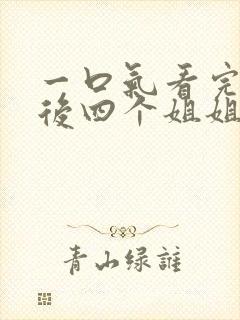 一口氣看完
後四个姐姐
青山绿誰